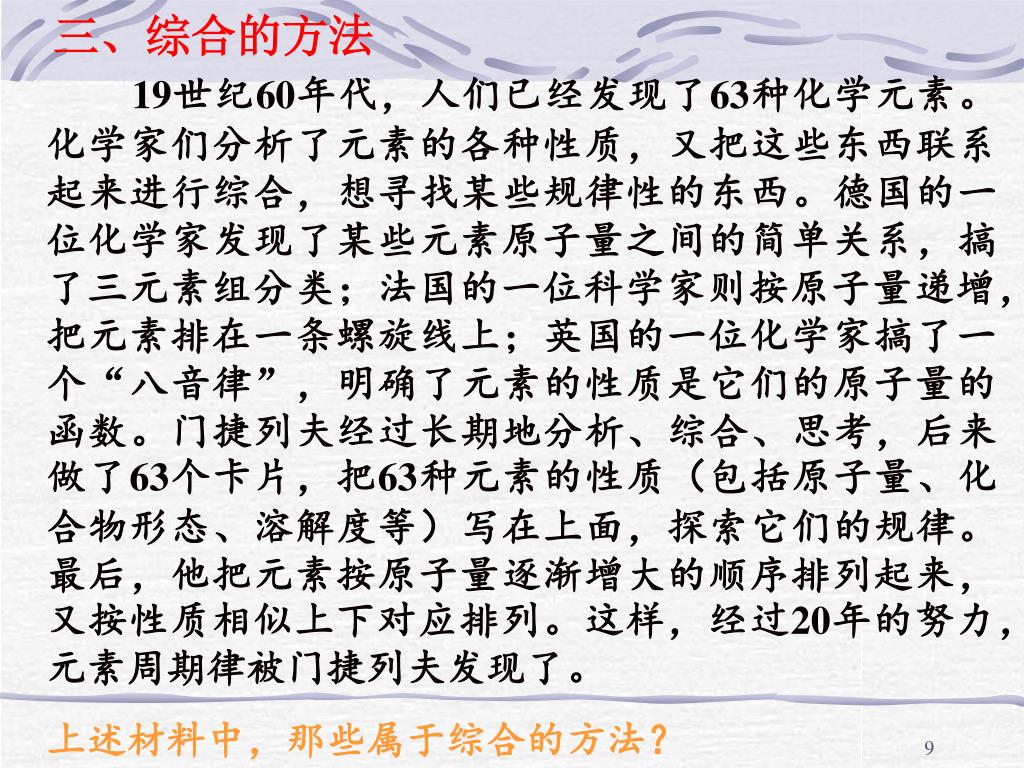 三、综合的方法
19世纪60年代，人们已经发现了63种化学元素。
化学家们分析了元素的各种性质，又把这些东西联系
起来进行综合，想寻找某些规律性的东西。德国的一
位化学家发现了某些元素原子量之间的简单关系，搞
了三元素组分类；法国的一位科学家则按原子量递增，
把元素排在一条螺旋线上；英国的一位化学家搞了一
个“八音律”，明确了元素的性质是它们的原子量的
函数。门捷列夫经过长期地分析、综合、思考，后来
做了63个卡片，把63种元素的性质（包括原子量、化
合物形态、溶解度等）写在上面，探索它们的规律。
最后，他把元素按原子量逐渐增大的顺序排列起来，
又按性质相似上下对应排列。这样，经过20年的努力，
元素周期律被门捷列夫发现了。
上述材料中，那些属于综合的方法？
9